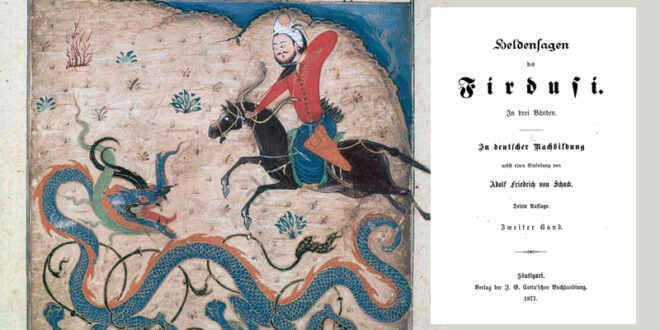 Heldensagen
des
Firdusi.
In drei Bänden.
In deutscher Nachbildung
nebst einer Einleitung von
Adolf Friedrich von Schack.
Dritte Auflage.
Zweiter Band.
Stuttgart.
Verlag der J. G. Cotta'schen Buchhandlung.
1877.